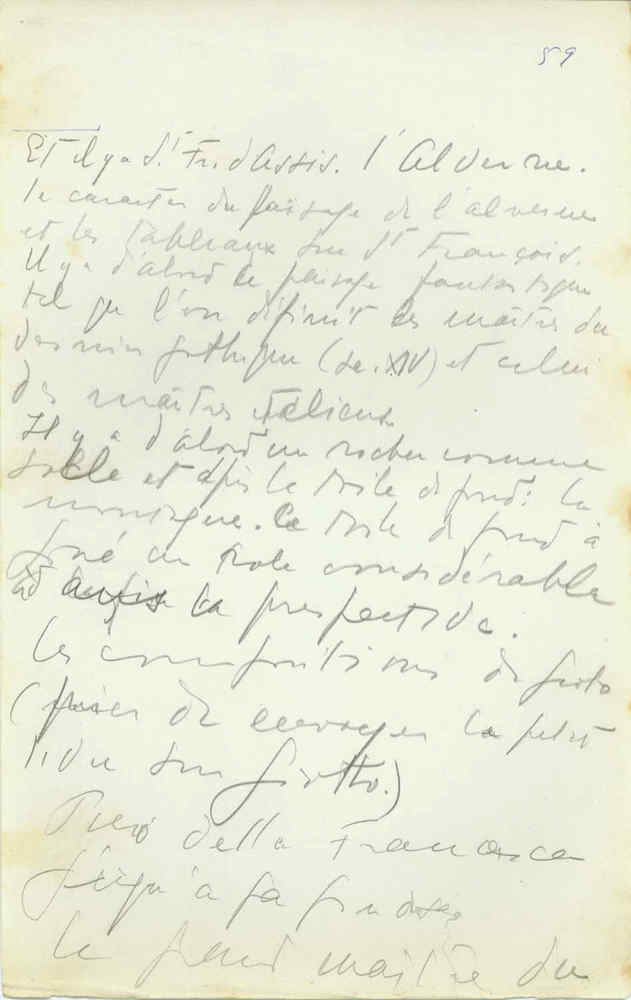 59
Et il y a St Fr. d'Assis. l'Alverne.
le caractère du paysage de l'alverne
et les tableaux sur St François.
Il y a d'abord le paysage fantastique
tel que l'on définit les maîtres du
dernier gothique (se. XIV) et celui
des maîtres italiens
Il y a d'abord un rocher comme
socle et après la toile de fond: la
montagne. La toile de fond à
joué un role considérable
la perspective.
les compositions de Giotto
(prier de envoyer le petit
livre sur Giotto.)
Piero della Francesca
jusqu'à sa
le grand maître du